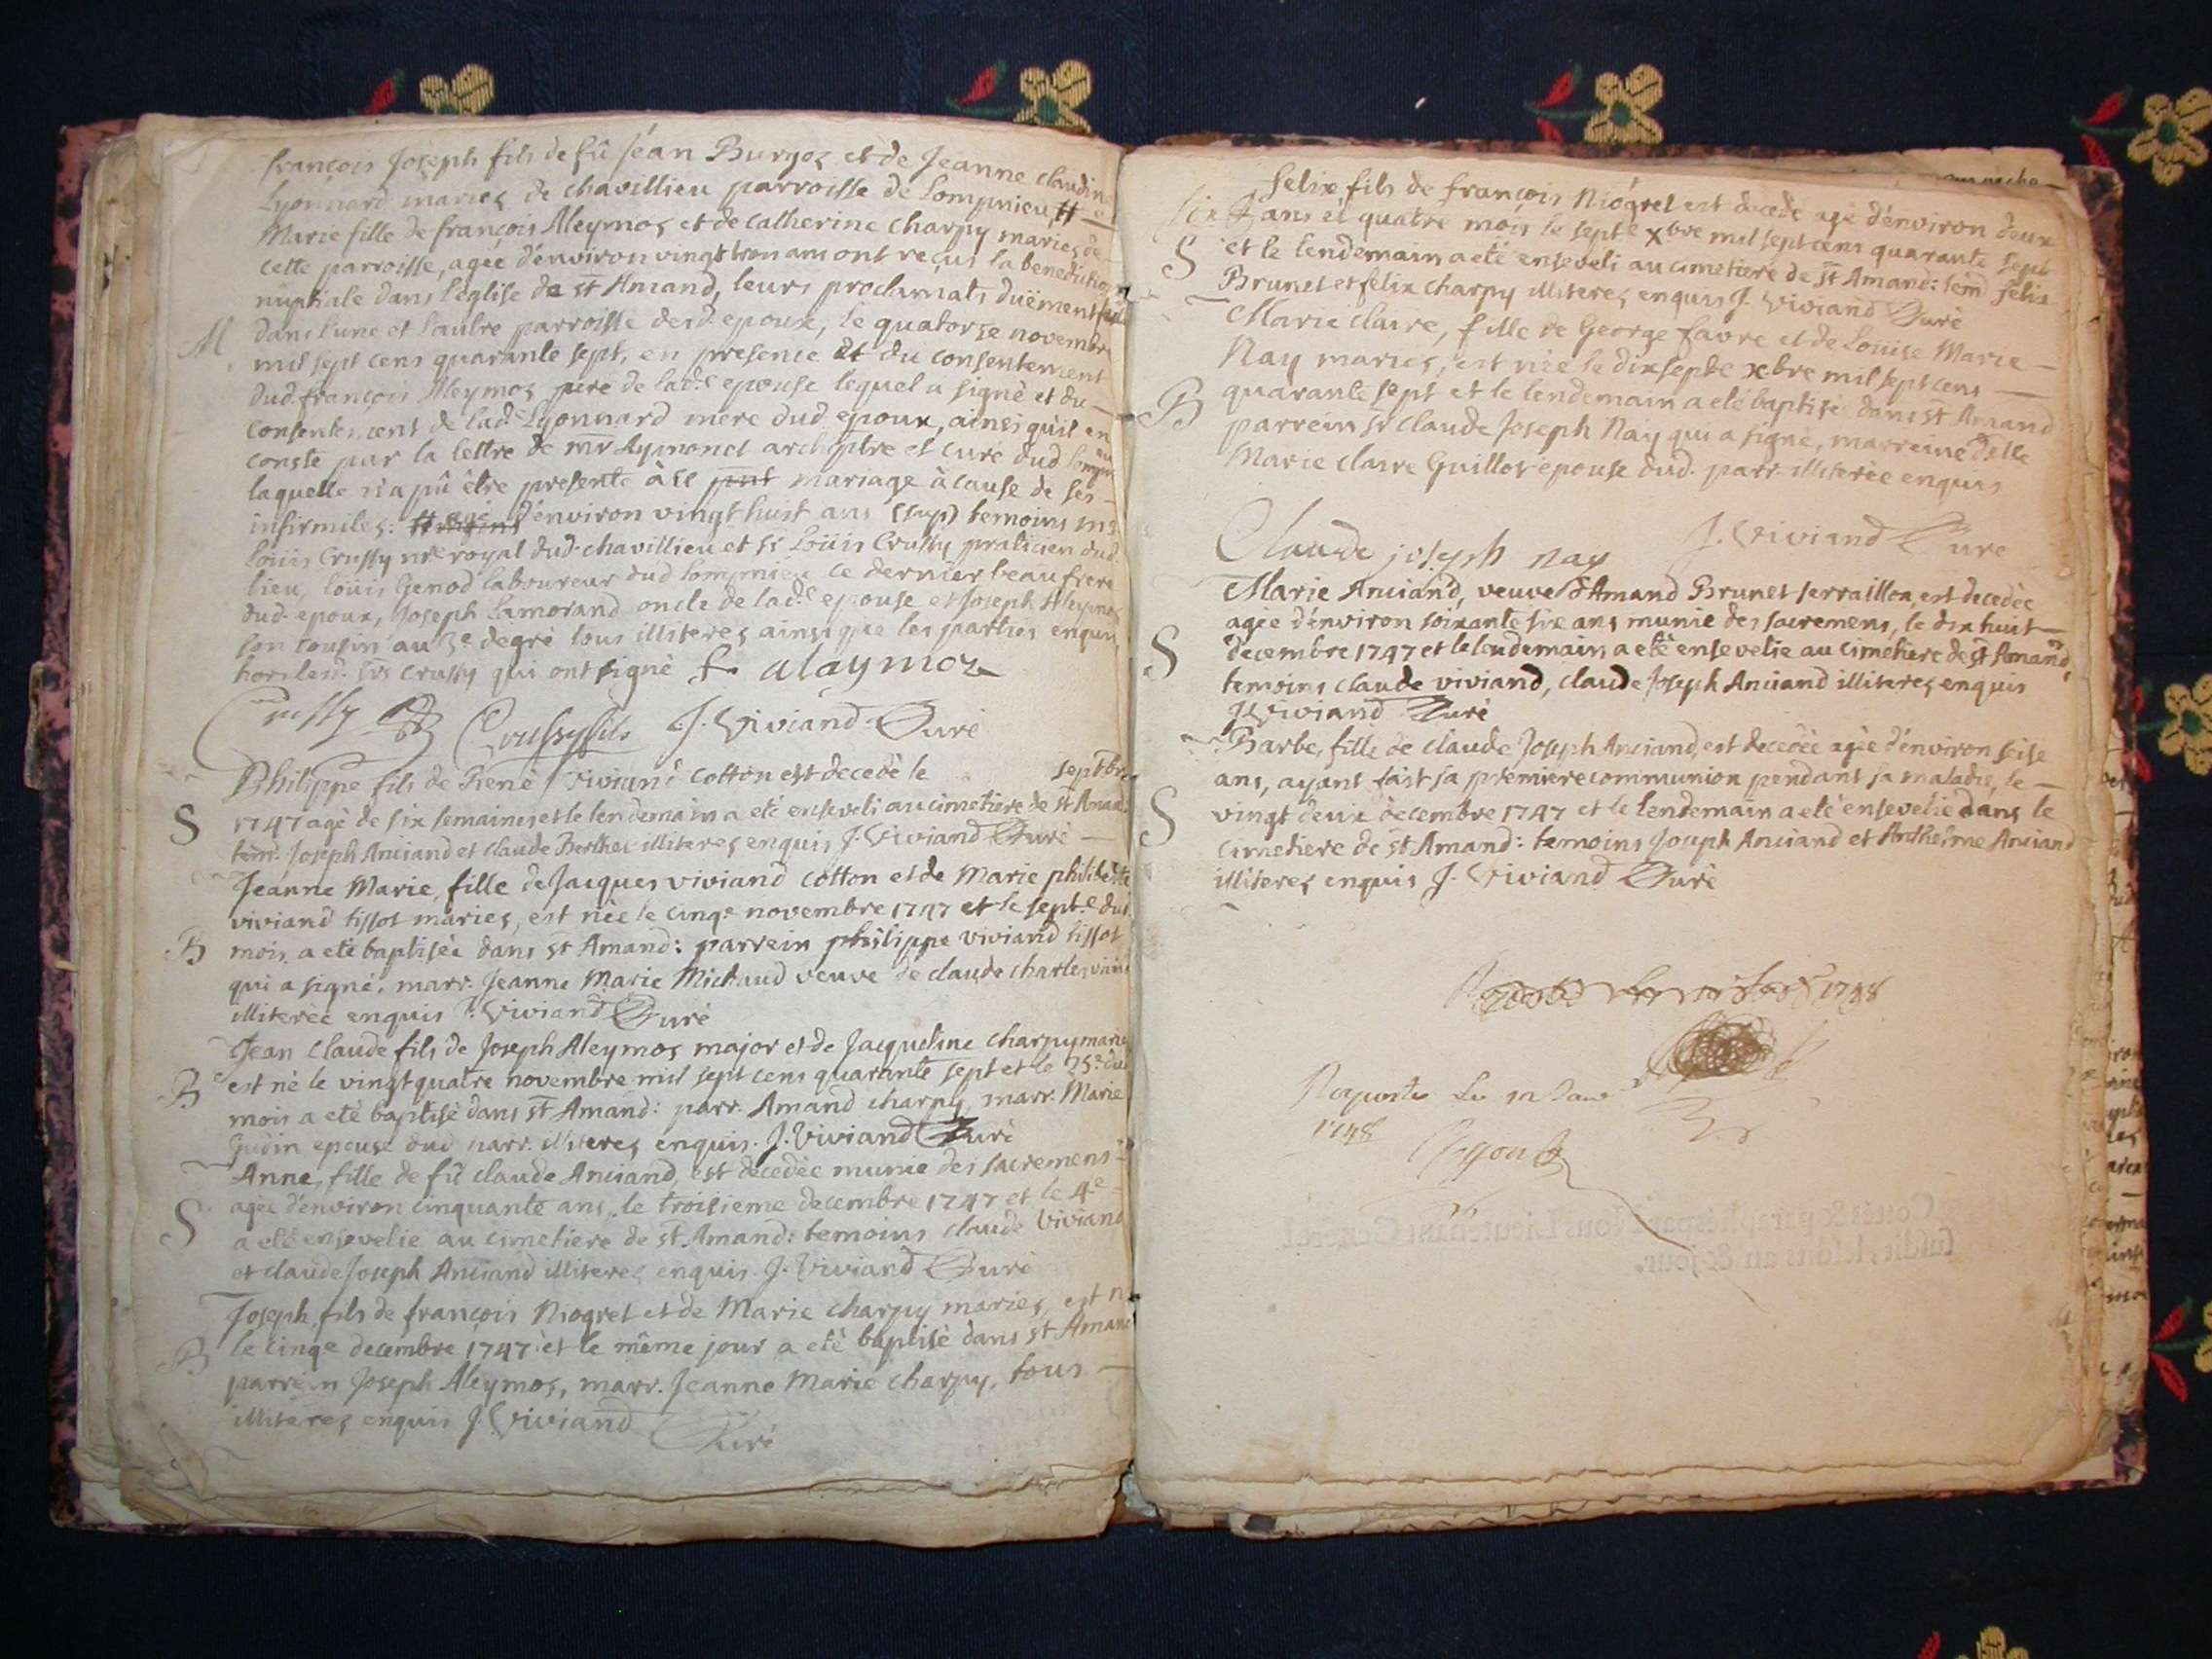 françois Joseph fils de fû Jéan Burgoz et de Jeanne claudine
Lyonnard mariez de chavillieu parroisse de Lompnieu, # et
Marie fille de françois Aleymoz et de catherine charpy mariez de
cette parroisse, agée d'énviron vingt trois ans ont reçus la benediction
nuptiale dans l'eglise de st Amand, leurs proclamats düement faits
M
dans l'une et l'autre parroisse desd. epoux, le quatorze novembre
mil sept cens quarante sept, en presence et du consentement
dud. françois Aleymoz pere de lad.e epouse lequel a signé et du
consentement de lad.e Lyonnard mere dud. epoux, ainsi qu'il en
conste par la lettre de mr Aymonet archiptre et curé dud
laquelle n'a pû être presente à ce pnt mariage à cause de ses
infirmitez: # agé d'énviron vingt huit ans (sup) temoins me
Loüis Crussy nre royal dud. chavillieu et sr Loüis Crussy praticien dud.
lieu, loüis Genod laboureur dud Lompnieu ce dernier beau frere
dud. epoux, Joseph Lamorand oncle de lad.e epouse et Joseph Aleymoz
son cousin au 3e degré tous illiterez ainsi que les parties enquis
hors lesd. srs Crussy qui ont signé f. alaymoz
Crussy Crussy fils J. Viviand Curé
Philippe fils de René Viviand cotton est decedé le septbre
S
1747 agé de six semaines et le lendemain a eté enseveli au cimetiere de st Amand
tem. Joseph Anciand et claude Berthet illiterez enquis J. Viviand Curé
Jeanne Marie, fille de Jacques viviand cotton et de Marie philiberte
viviand tissot mariez, est née le cinqe novembre 1747 et le sept.e dud.
B
mois a eté baptisée dans st Amand: parrein philippe viviand tissot
qui a signé, marr. Jeanne Marie Michaud veuve de claude charles
illiterée enquis J. Viviand Curé
Jean Claude fils de Joseph Aleymoz major et de Jacqueline charpy mariez
B
est né le vingt quatre novembre mil sept cens quarante sept et le 25e dud
mois a eté baptisé dans st Amand: parr. Amand charpy, marr. Marie
Gudin epouse dud parr. illiterez enquis. J. Viviand Curé
Anne, fille de fû claude Anciand, est decedée munie des sacremens
S
agée d'énviron cinquante ans, le troisieme decembre 1747 et le 4e
a eté ensevelie au cimetiere de st Amand: temoins claude Viviand
et claude Joseph Anciand illiterez enquis. J. Viviand Curé
Joseph, fils de françois Niogret et de Marie charpy mariez, est né
le cinqe decembre 1747 et le même jour a eté baptisé dans st Amand
B
parrein Joseph Aleymoz, marr. Jeanne Marie charpy, tous
illiterez enquis J. Viviand
Curé
Felix, fils de françois Niogret est decedé agé d'énviron deux
ans et quatre mois le septe xbre mil sept cens quarante sept
S
et le lendemain a eté enseveli au cimetiere de st Amand: tem felix
Brunet et felix charpy illiterez enquis J. Viviand Curé
Marie claire, fille de George favre et de Loüise Marie
Nay mariez, est née le dix septe xbre mil sept cens
B
quarante sept et le lendemain a eté baptisée dans st Amand
parrein sr claude Joseph Nay qui a signé, marreine delle
Marie claire Guillot epouse dud. parr. illiterée enquis
Claude joseph nay J. Viviand Curé
Marie Anciand, veuve d'Amand Brunet serraillon, est decedée
agée d'énviron soixante six ans munie des sacremens, le dix huit
S
decembre 1747 et le lendemain a eté ensevelie au cimetiere de st Amand,
temoins claude viviand, claude Joseph Anciand illiterez enquis
J. Viviand Curé
Barbe, fille de claude Joseph Anciand, est decedée agée d'énviron seise
ans, ayant fait sa premiere communion pendant sa maladie, le
S
vingt deux decembre 1747 et le lendemain a eté ensevelie dans le
cimetiere de st Amand: temoins Joseph Anciand et Antheime Anciand
illiterez enquis J. Viviand Curé
1748
1748